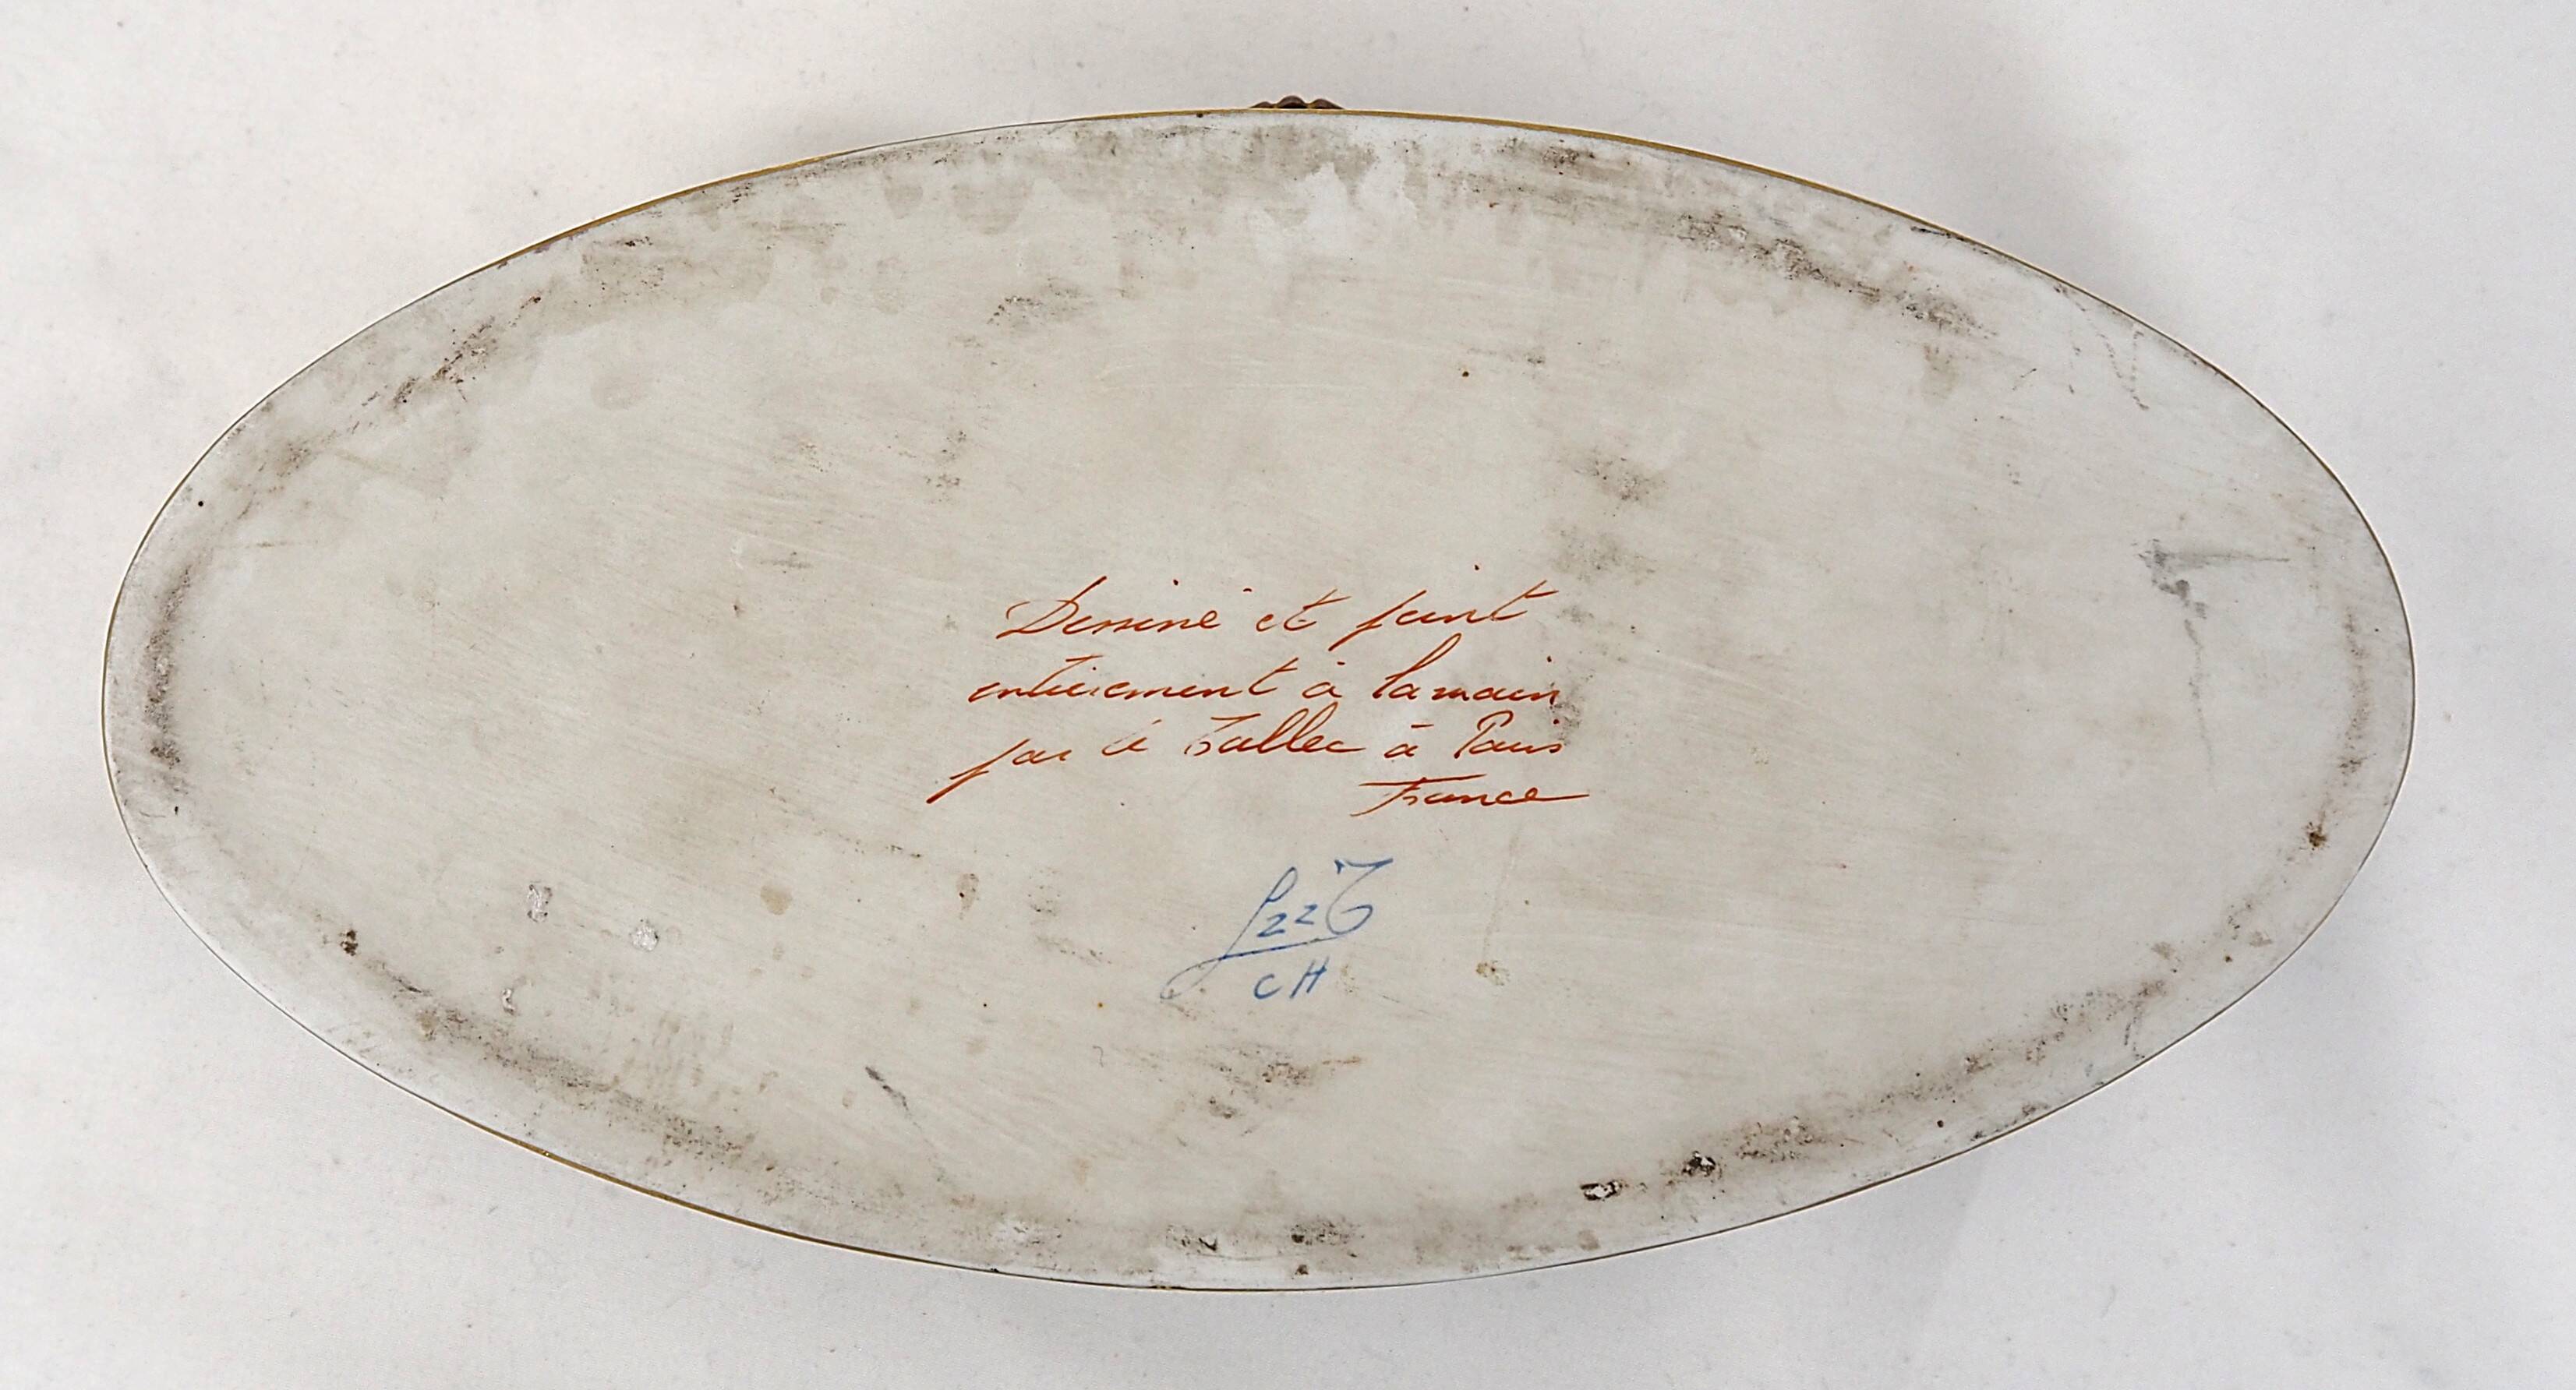 Dessiné et peint
entièrement à la main
par Le Tallec à Paris
France
L22T
CH